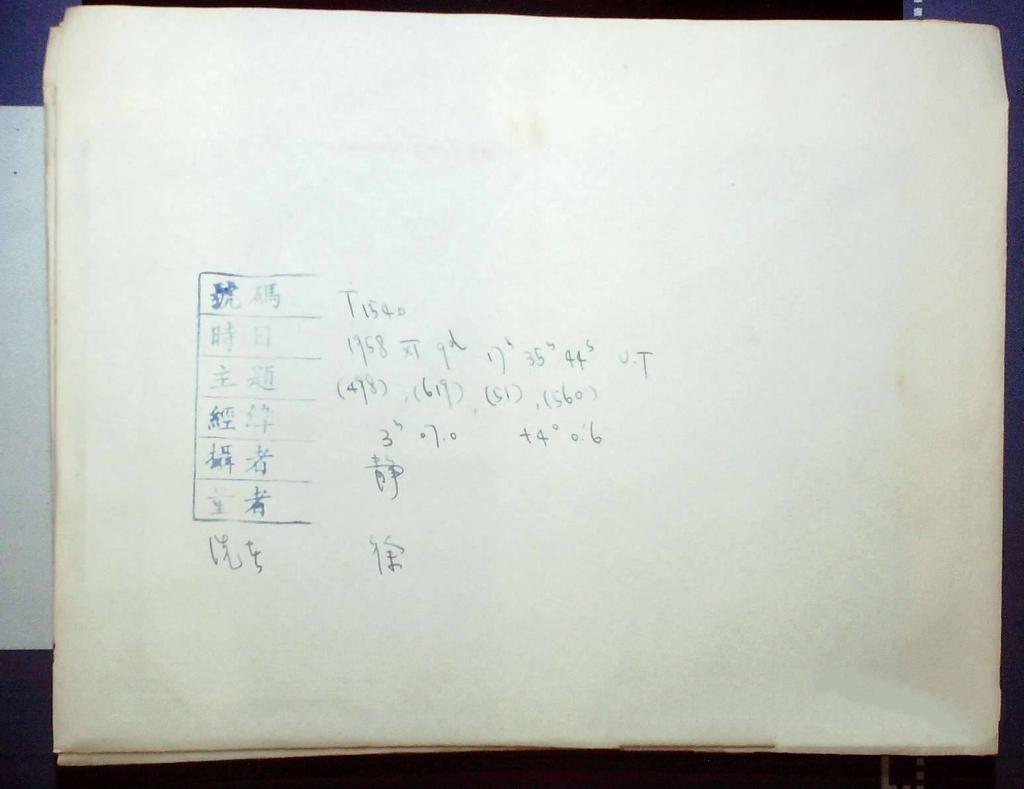 號碼 T1540
時日 1958 XI 9d 17h 35m 44s U.T
主題 (498), (619), (51), (560)
經緯 3h 07.0 +4° 0.6
攝者 静
者
洗者 徐